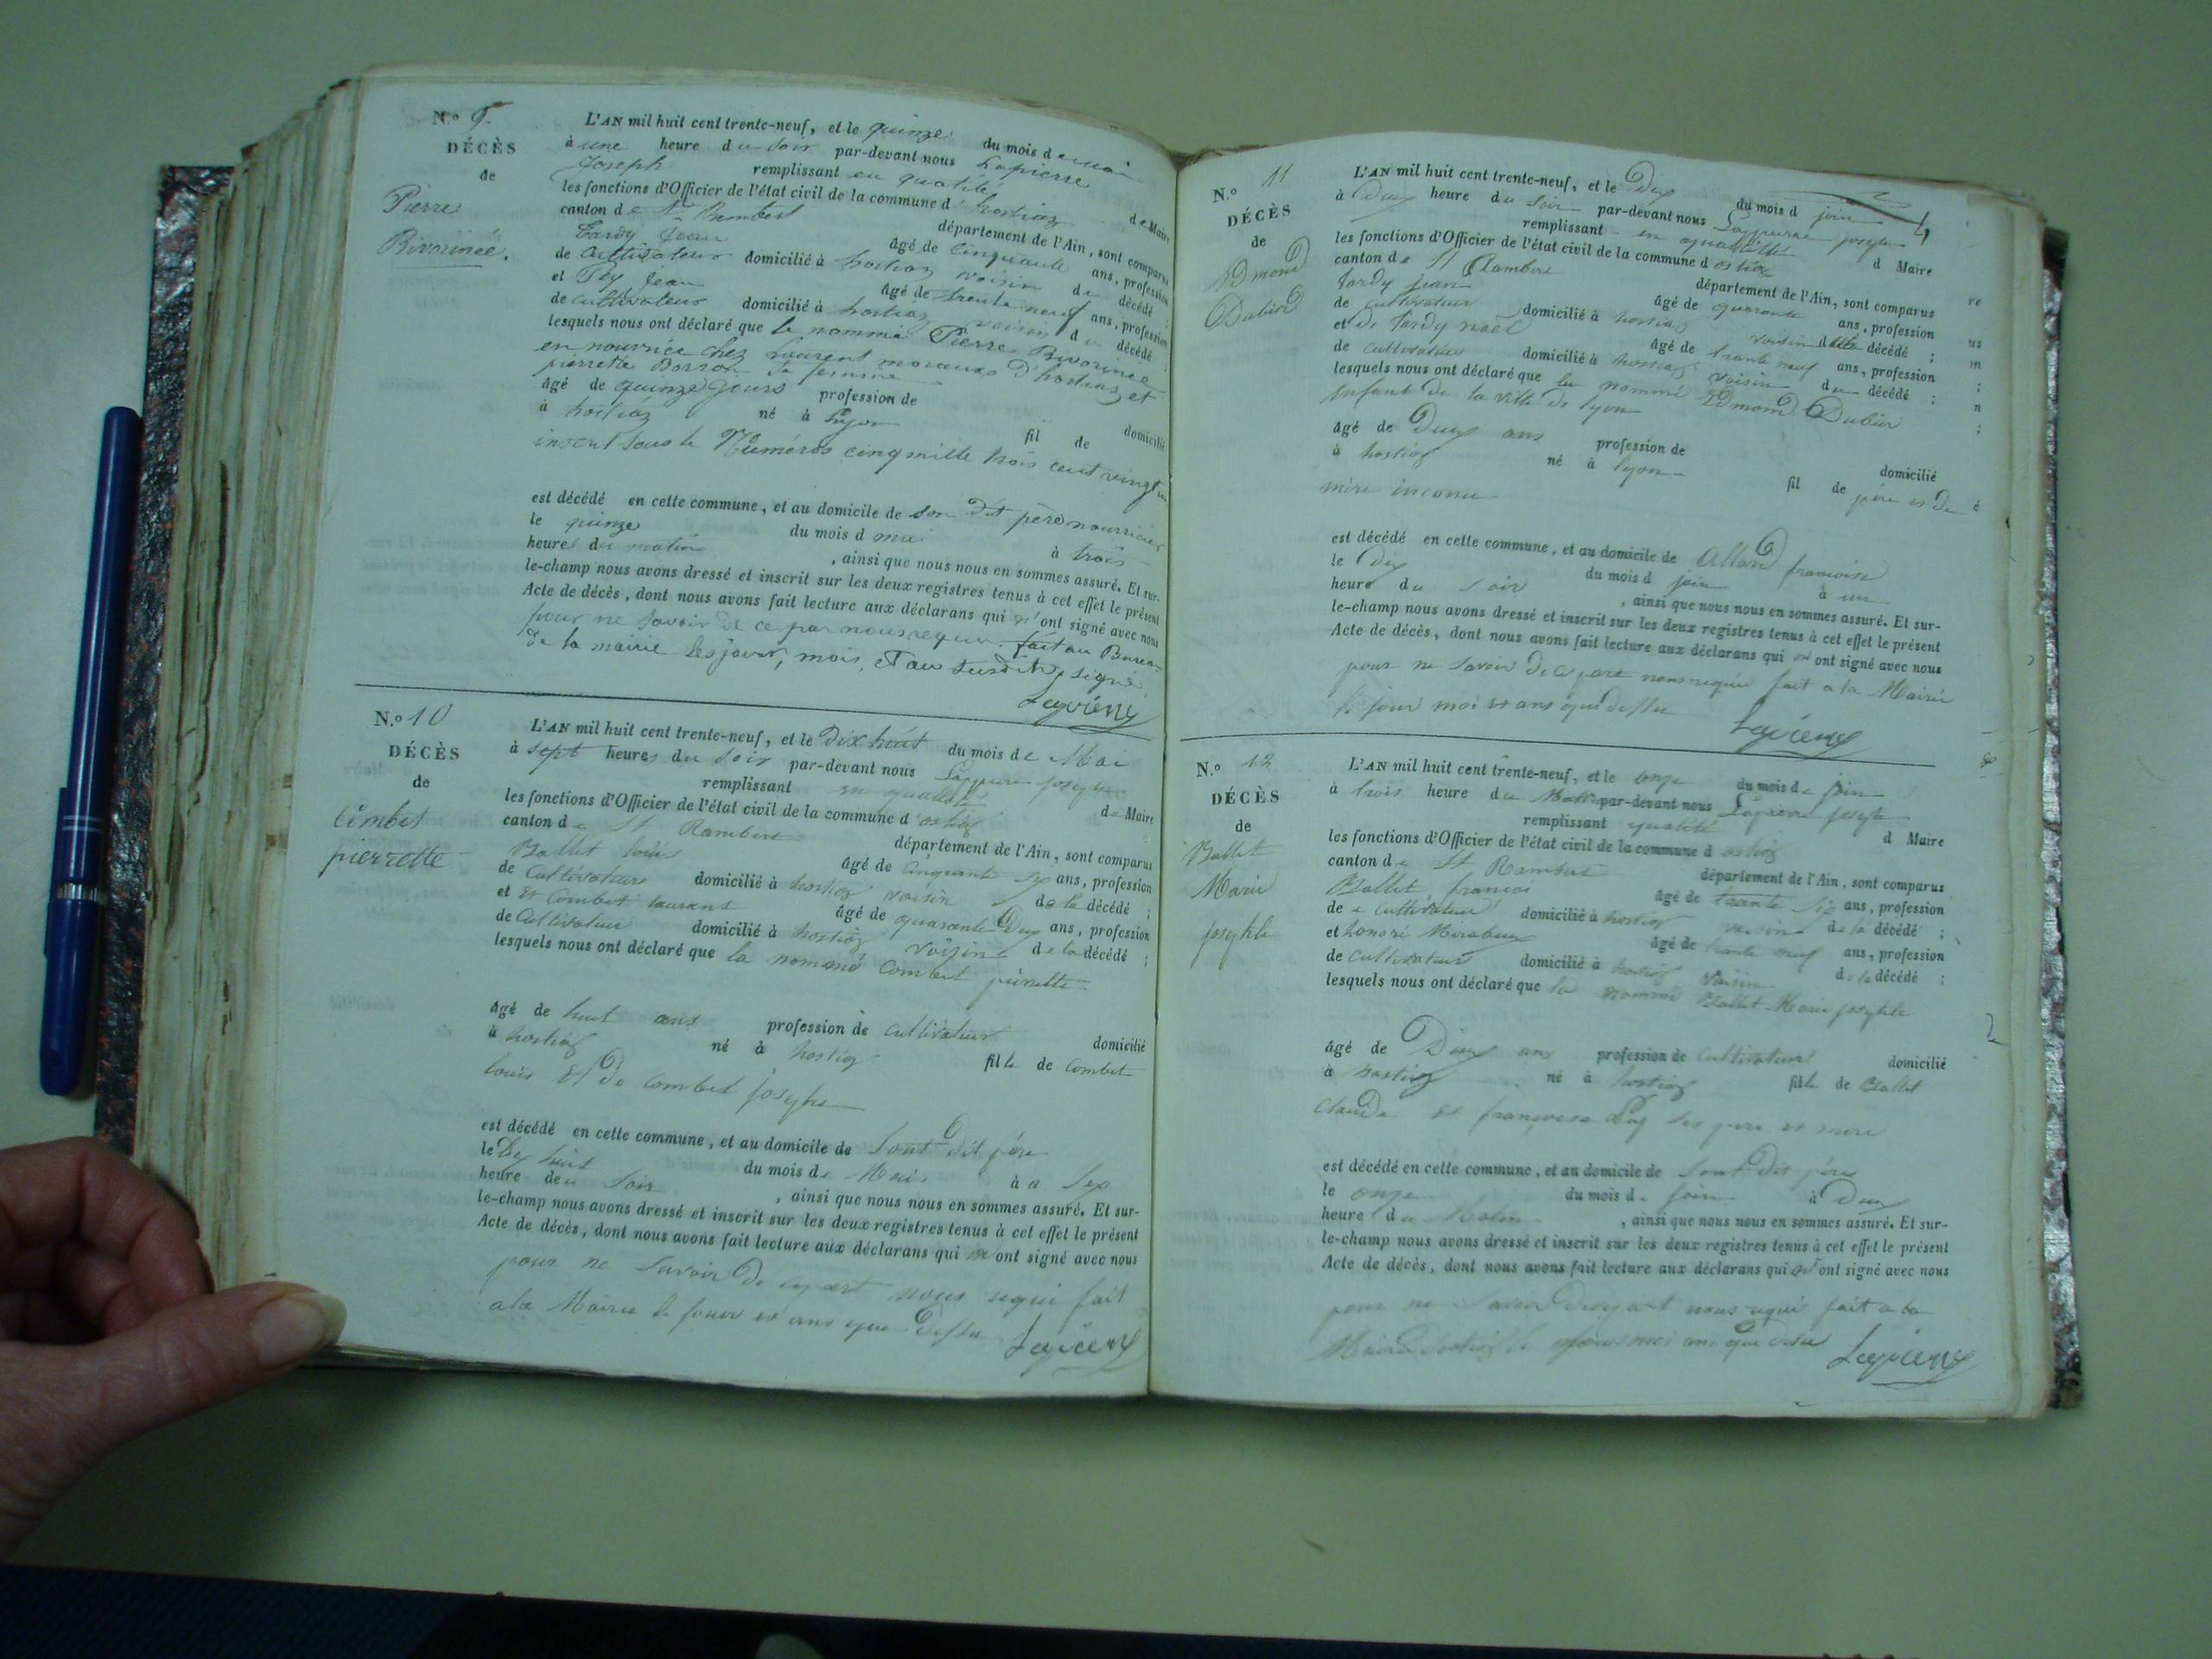 N.º 9.
DÉCÈS
de
Pierre
Bivorinée.
L'AN mil huit cent trente-neuf, et le quinze du mois de mai
à une heure du soir par-devant nous Lapierre
Joseph remplissant en qualité de Maire
les fonctions d'Officier de l'état civil de la commune d'hostiaz
canton de St Rambert département de l'Ain, sont comparus
Tardy Jean âgé de Cinquante ans, profession
de Cultivateur domicilié à hostiaz voisin du décédé ;
et Jean âgé de trente neuf ans, profession
de cultivateur domicilié à hostiaz voisin du décédé ;
lesquels nous ont déclaré que le nommé Pierre Bivorinée
en nourrice chez Laurent d'hostiaz et
pierrette Borron sa femme
âgé de quinze jours profession de domicilié
à hostiaz né à Lyon fil de
inscrit sous le Numéros cinq mille trois cent vingt un
est décédé en cette commune, et au domicile de son dit père nourricier
le quinze du mois d mai à trois
heures du matin , ainsi que nous nous en sommes assuré. Et sur-
le-champ nous avons dressé et inscrit sur les deux registres tenus à cet effet le présent
Acte de décès, dont nous avons fait lecture aux déclarans qui n'ont signé avec nous
pour ne savoir de ce par nous requis. fait au Bureau
de la mairie les jour, mois, et an susdit, signé
Lapierre
N.º 10
DÉCÈS
de
Combet
pierrette
L'AN mil huit cent trente-neuf, et le Dix huit du mois de Mai
à sept heures du soir par-devant nous Lapierre joseph
remplissant en qualité de Maire
les fonctions d'Officier de l'état civil de la commune d'ostiaz
canton de St Rambert département de l'Ain, sont comparus
Ballet louis âgé de Cinquante six ans, profession
de Cultivateur domicilié à hostiaz voisin de la décédé ;
et Et Combet laurent âgé de quarante Dux ans, profession
de Cultivateur domicilié à hostiaz voisin de la décédé ;
lesquels nous ont déclaré que la nommé Combet pierette
âgé de huit ans profession de cultivateur domicilié
à hostiaz né à hostiaz fille de Combet
louis Et de Combet josephe
est décédé en cette commune, et au domicile de sont dit père
le Dix huit du mois de Mai à a Sep
heure deu soir , ainsi que nous nous en sommes assuré. Et sur-
le-champ nous avons dressé et inscrit sur les deux registres tenus à cet effet le présent
Acte de décès, dont nous avons fait lecture aux déclarans qui n'ont signé avec nous
pour ne savoir de cepart nous requi fait
a la Mairie le jour et ans que Dessu
Lapierre
N.º 11
DÉCÈS
de
Edmond
Dubied
L'AN mil huit cent trente-neuf, et le Dix du mois d join
à Dux heure du soir par-devant nous Lapierre joseph
remplissant en qualité d Maire
les fonctions d'Officier de l'état civil de la commune d ostiaz
canton de St Rambert département de l'Ain, sont comparus
Tardy jean âgé de quarante ans, profession
de cultivateur domicilié à hostiaz voisin du décédé ;
et de Tardy noël âgé de trante neuf ans, profession
de cultivateur domicilié à hostiaz voisin du décédé ;
lesquels nous ont déclaré que le nommé Edmond Dubier
enfant de la ville de lyon
âgé de Dux ans profession de domicilié
à hostiaz né à lyon fil de père et de
mère inconu
est décédé en cette commune, et au domicile de Allard francoise
le Dix du mois d join à un
heure du soir , ainsi que nous nous en sommes assuré. Et sur-
le-champ nous avons dressé et inscrit sur les deux registres tenus à cet effet le présent
Acte de décès, dont nous avons fait lecture aux déclarans qui n'ont signé avec nous
pour ne savoir de ce part nous requi fait a la Mairie
le jour moi et ans que dessu
Lapierre
N.º 12
DÉCÈS
de
Ballet
Marie
josephte
L'AN mil huit cent trente-neuf, et le onze du mois de join
à trois heure du Matin par-devant nous Lapierre joseph
remplissant qualité d Maire
les fonctions d'Officier de l'état civil de la commune d ostiaz
canton de St Rambert département de l'Ain, sont comparus
Ballet françoi âgé de trante six ans, profession
de cultivateur domicilié à hostiaz voisin de la décédé ;
et honoré Mirabeux âgé de trante neuf ans, profession
de cultivateur domicilié à hostiaz voisin de la décédé ;
lesquels nous ont déclaré que la nommé Ballet Marie josephte
âgé de Dieux ans profession de cultivateur domicilié
à hostiaz né à hostiaz fille de Ballet
Claude et francoise ses père et mere
est décédé en cette commune, et au domicile de sont dit père
le onze du mois de join à Dux
heure du Matin , ainsi que nous nous en sommes assuré. Et sur-
le-champ nous avons dressé et inscrit sur les deux registres tenus à cet effet le présent
Acte de décès, dont nous avons fait lecture aux déclarans qui n'ont signé avec nous
pour ne savoir nous requi fait a la
Mairie d'ostiaz le jour moi ans que desu
Lapierre